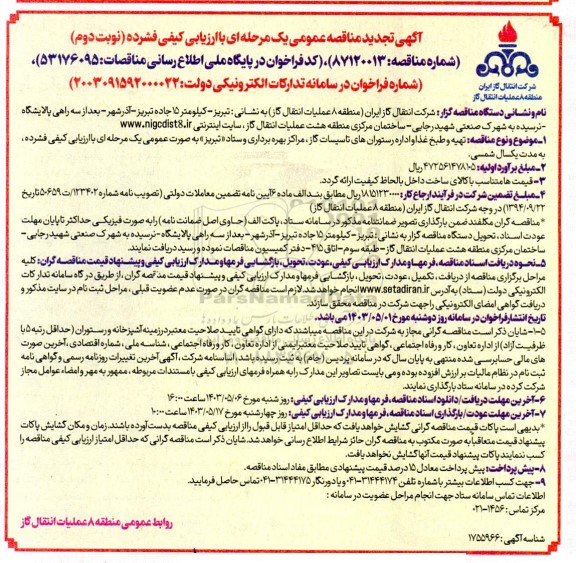 آگهی تجدید مناقصه عمومی یک مرحله ای با ارزیابی کیفی فشرده (نوبت دوم)
(شماره مناقصه: ۸۷۱۲۰۰۱۳)، (کد فراخوان در پایگاه ملی اطلاع رسانی مناقصات: ۵۳۱۷۶۰۹۵)،
(شماره فراخوان در سامانه تدارکات الکترونیکی دولت: ۲۰۰۳۰۹۱۵۹۲۰۰۰۰۲۲)
شرکت انتقال گاز ایران
منطقه ۸ عملیات انتقال گاز
نام و نشانی دستگاه مناقصه گزار: شرکت انتقال گاز ایران (منطقه ۸ عملیات انتقال گاز) به نشانی: تبریز-کیلومتر ۱۵ جاده تبریز-آذرشهر-بعد از سه راهی پالایشگاه
-نرسیده به شهرک صنعتی شهید رجایی-ساختمان مرکزی منطقه هشت عملیات انتقال گاز، سایت اینترنتی www.nigcdist8.ir
۱-موضوع و نوع مناقصه: تهیه و طبخ غذا و اداره رستوران های تاسیسات گاز، مراکز بهره برداری و ستاد «تبریز» به صورت عمومی یک مرحله ای با ارزیابی کیفی فشرده،
به مدت یکسال شمسی.
۲-مبلغ برآورد اولیه: ۴۷۲۵۶۱۴۷۸۱۰۵ ریال
۳-قیمت ها متناسب با کالای ساخت داخل با لحاظ کیفیت ارائه گردد.
۴-مبلغ تضمین شرکت در فرآیند ارجاع کار: ۱۸۱۵۱۲۳۰۰۰۰ ریال مطابق بند الف ماده ۶ آیین نامه تضمین معاملات دولتی (تصویب نامه شماره ۱۲۳۴۰۲/ت۵۰۶۵۹ه تاریخ
۱۳۹۴/۰۹/۲۲) در وجه شرکت انتقال گاز ایران (منطقه ۸ عملیات انتقال گاز)
*مناقصه گران مکلفند ضمن بارگذاری تصویر ضمانتنامه مذکور در سامانه ستاد، پاکت الف (حاوی اصل ضمانت نامه) را به صورت فیزیکی حداکثر تا پایان مهلت
عودت اسناد، تحویل دستگاه مناقصه گزار به نشانی: تبریز-کیلومتر ۱۵ جاده تبریز-آذرشهر-بعد از سه راهی پالایشگاه-نرسیده به شهرک صنعتی شهید رجایی-
ساختمان مرکزی منطقه هشت عملیات انتقال گاز-طبقه سوم-اتاق ۴۱۵-دفتر کمیسیون مناقصات نموده و رسید دریافت نمایند.
۵-نحوه دریافت اسناد مناقصه، فرمها و مدارک ارزیابی کیفی، عودت، تحویل، بازگشایی فرمها و مدارک ارزیابی کیفی و پیشنهاد قیمت مناقصه گران: کلیه
مراحل برگزاری مناقصه از دریافت، تکمیل، عودت، تحویل، بازگشایی فرمها و مدارک ارزیابی کیفی و پیشنهاد قیمت مناقصه گران، از طریق درگاه سامانه تدارکات
الکترونیکی دولت (ستاد) به آدرس www.setadiran.ir انجام خواهد شد. لازم است مناقصه گران در صورت عدم عضویت قبلی، مراحل ثبت نام در سایت مذکور و
دریافت گواهی امضای الکترونیکی را جهت شرکت در مناقصه محقق سازند.
تاریخ انتشار فراخوان در سامانه روز دوشنبه مورخ ۱۴۰۳/۰۵/۰۱ می باشد.
۱-۵-شایان ذکر است مناقصه گرانی مجاز به شرکت در این مناقصه میباشند که دارای گواهی تایید صلاحیت معتبر در زمینه آشپزخانه و رستوران (حداقل رتبه ۵ با
ظرفیت آزاد) از اداره تعاون، کار و رفاه اجتماعی، گواهی تایید صلاحیت معتبر ایمنی از اداره تعاون، کار و رفاه اجتماعی، شناسه ملی، شماره اقتصادی، آخرین صورت
های مالی حسابرسی شده منتهی به پایان سال که در سامانه پردیس (جام) به ثبت رسیده باشد، اساسنامه شرکت، آگهی آخرین تغییرات روزنامه رسمی و گواهی نامه
ثبت نام در نظام مالیات بر ارزش افزوده بوده و می بایست تصاویر این مدارک را به همراه فرمهای ارزیابی کیفی با مستندات مربوطه، ممهور به مهر و امضاء عوامل مجاز
شرکت کرده در سامانه ستاد بارگذاری نمایند.
۶-آخرین مهلت دریافت/دانلود اسناد مناقصه، فرمها و مدارک ارزیابی کیفی: روز شنبه مورخ ۱۴۰۳/۰۵/۰۶ ساعت ۱۶:۰۰
۷-آخرین مهلت عودت/بارگذاری اسناد مناقصه، فرمها و مدارک ارزیابی کیفی: روز چهارشنبه مورخ ۱۴۰۳/۰۵/۱۷ ساعت ۱۰:۰۰
*بدیهی است پاکات قیمت مناقصه گرانی گشایش خواهد یافت که حداقل امتیاز قابل قبول را از ارزیابی کیفی مناقصه بدست آورده باشند. زمان و مکان گشایش پاکات
پیشنهاد قیمت متعاقباً به صورت مکتوب به مناقصه گران حائز شرایط اطلاع رسانی خواهد شد. شایان ذکر است مناقصه گرانی که حداقل امتیاز ارزیابی کیفی مناقصه را
کسب ننمایند پاکات پیشنهاد قیمت آنها گشایش نخواهد یافت.
۸-پیش پرداخت: پیش پرداخت معادل ۱۵ درصد قیمت پیشنهادی مطابق مفاد اسناد مناقصه.
۹-جهت کسب اطلاعات بیشتر با شماره تلفن ۳۱۴۴۴۱۷۴-۰۴۱ و یا دورنگار ۳۱۴۴۴۱۷۵-۰۴۱ تماس حاصل فرمایید.
اطلاعات تماس سامانه ستاد جهت انجام مراحل عضویت در سامانه:
مرکز تماس: ۱۴۵۶-۰۲۱
روابط عمومی منطقه ۸ عملیات انتقال گاز
شناسه آگهی: ۱۷۵۵۹۶۶